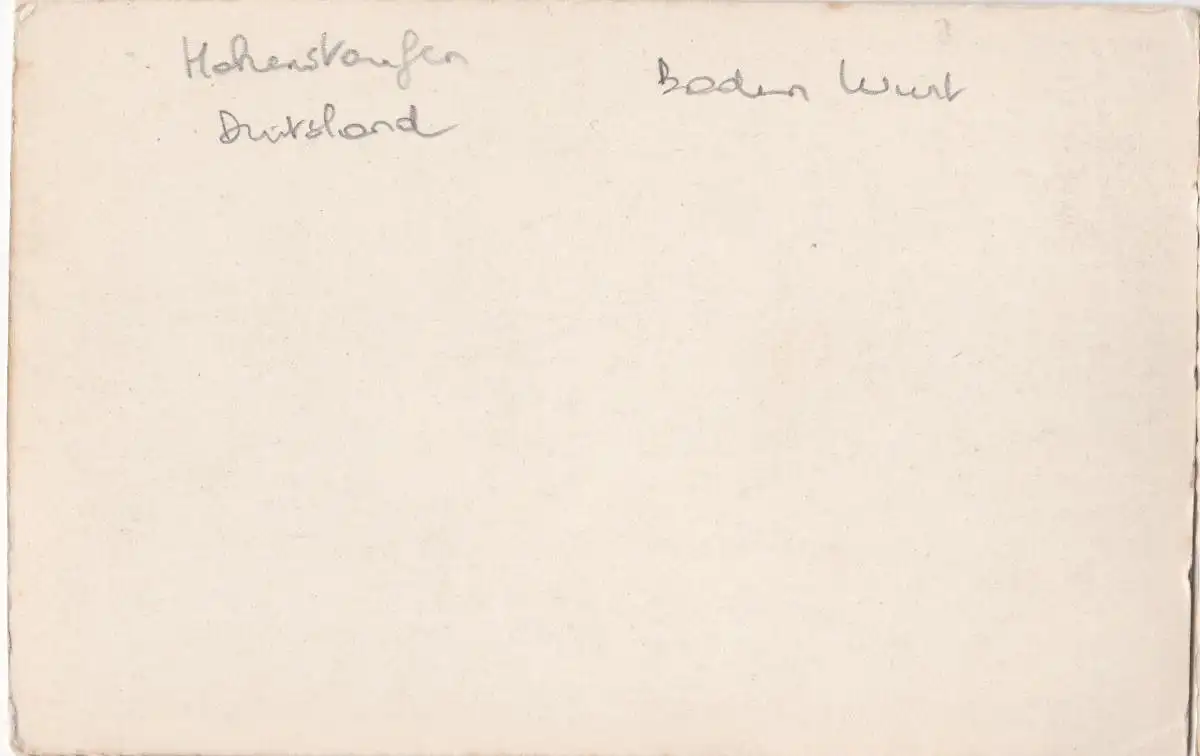 Hohenstaufen
Duitsland
Baden Wurt